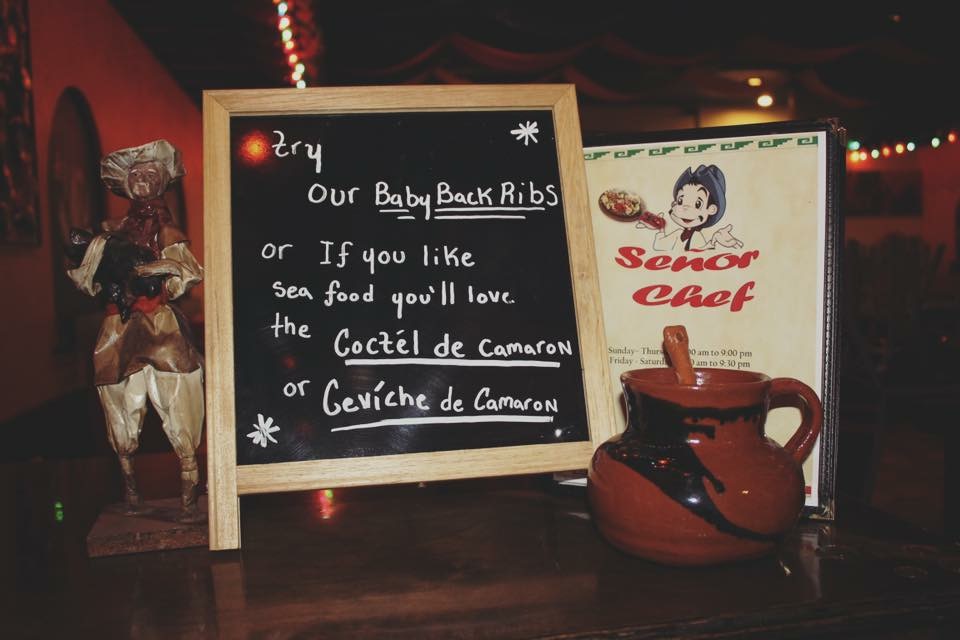 Try
our Baby Back Ribs
or If you like
sea food you'll love.
the Coctél de Camaron
or Cevíche de Camaron
Señor
Chef
Sunday - Thurs 00 am to 9:00 pm
Friday - Saturd am to 9:30 pm